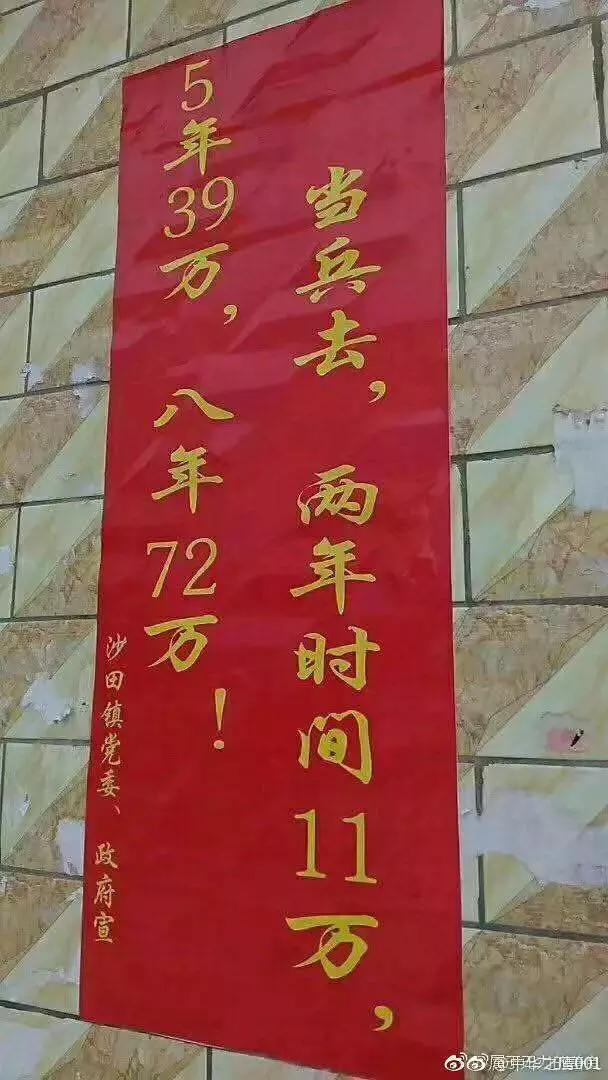 当兵去，两年时间11万，
5年39万，八年72万！
沙田镇党委、政府宣